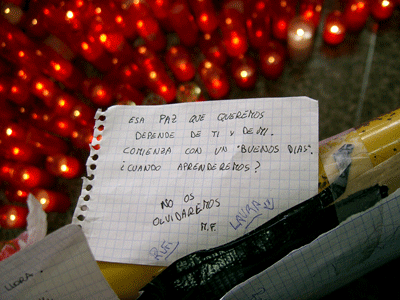 ESA PAZ QUE QUEREMOS
DEPENDE DE TI Y DE MI.
COMIENZA CON UN "BUENOS DIAS".
¿CUANDO APRENDEREMOS?
NO OS
OLVIDAREMOS
M.F.
RUTI
LAURA
LLORA.